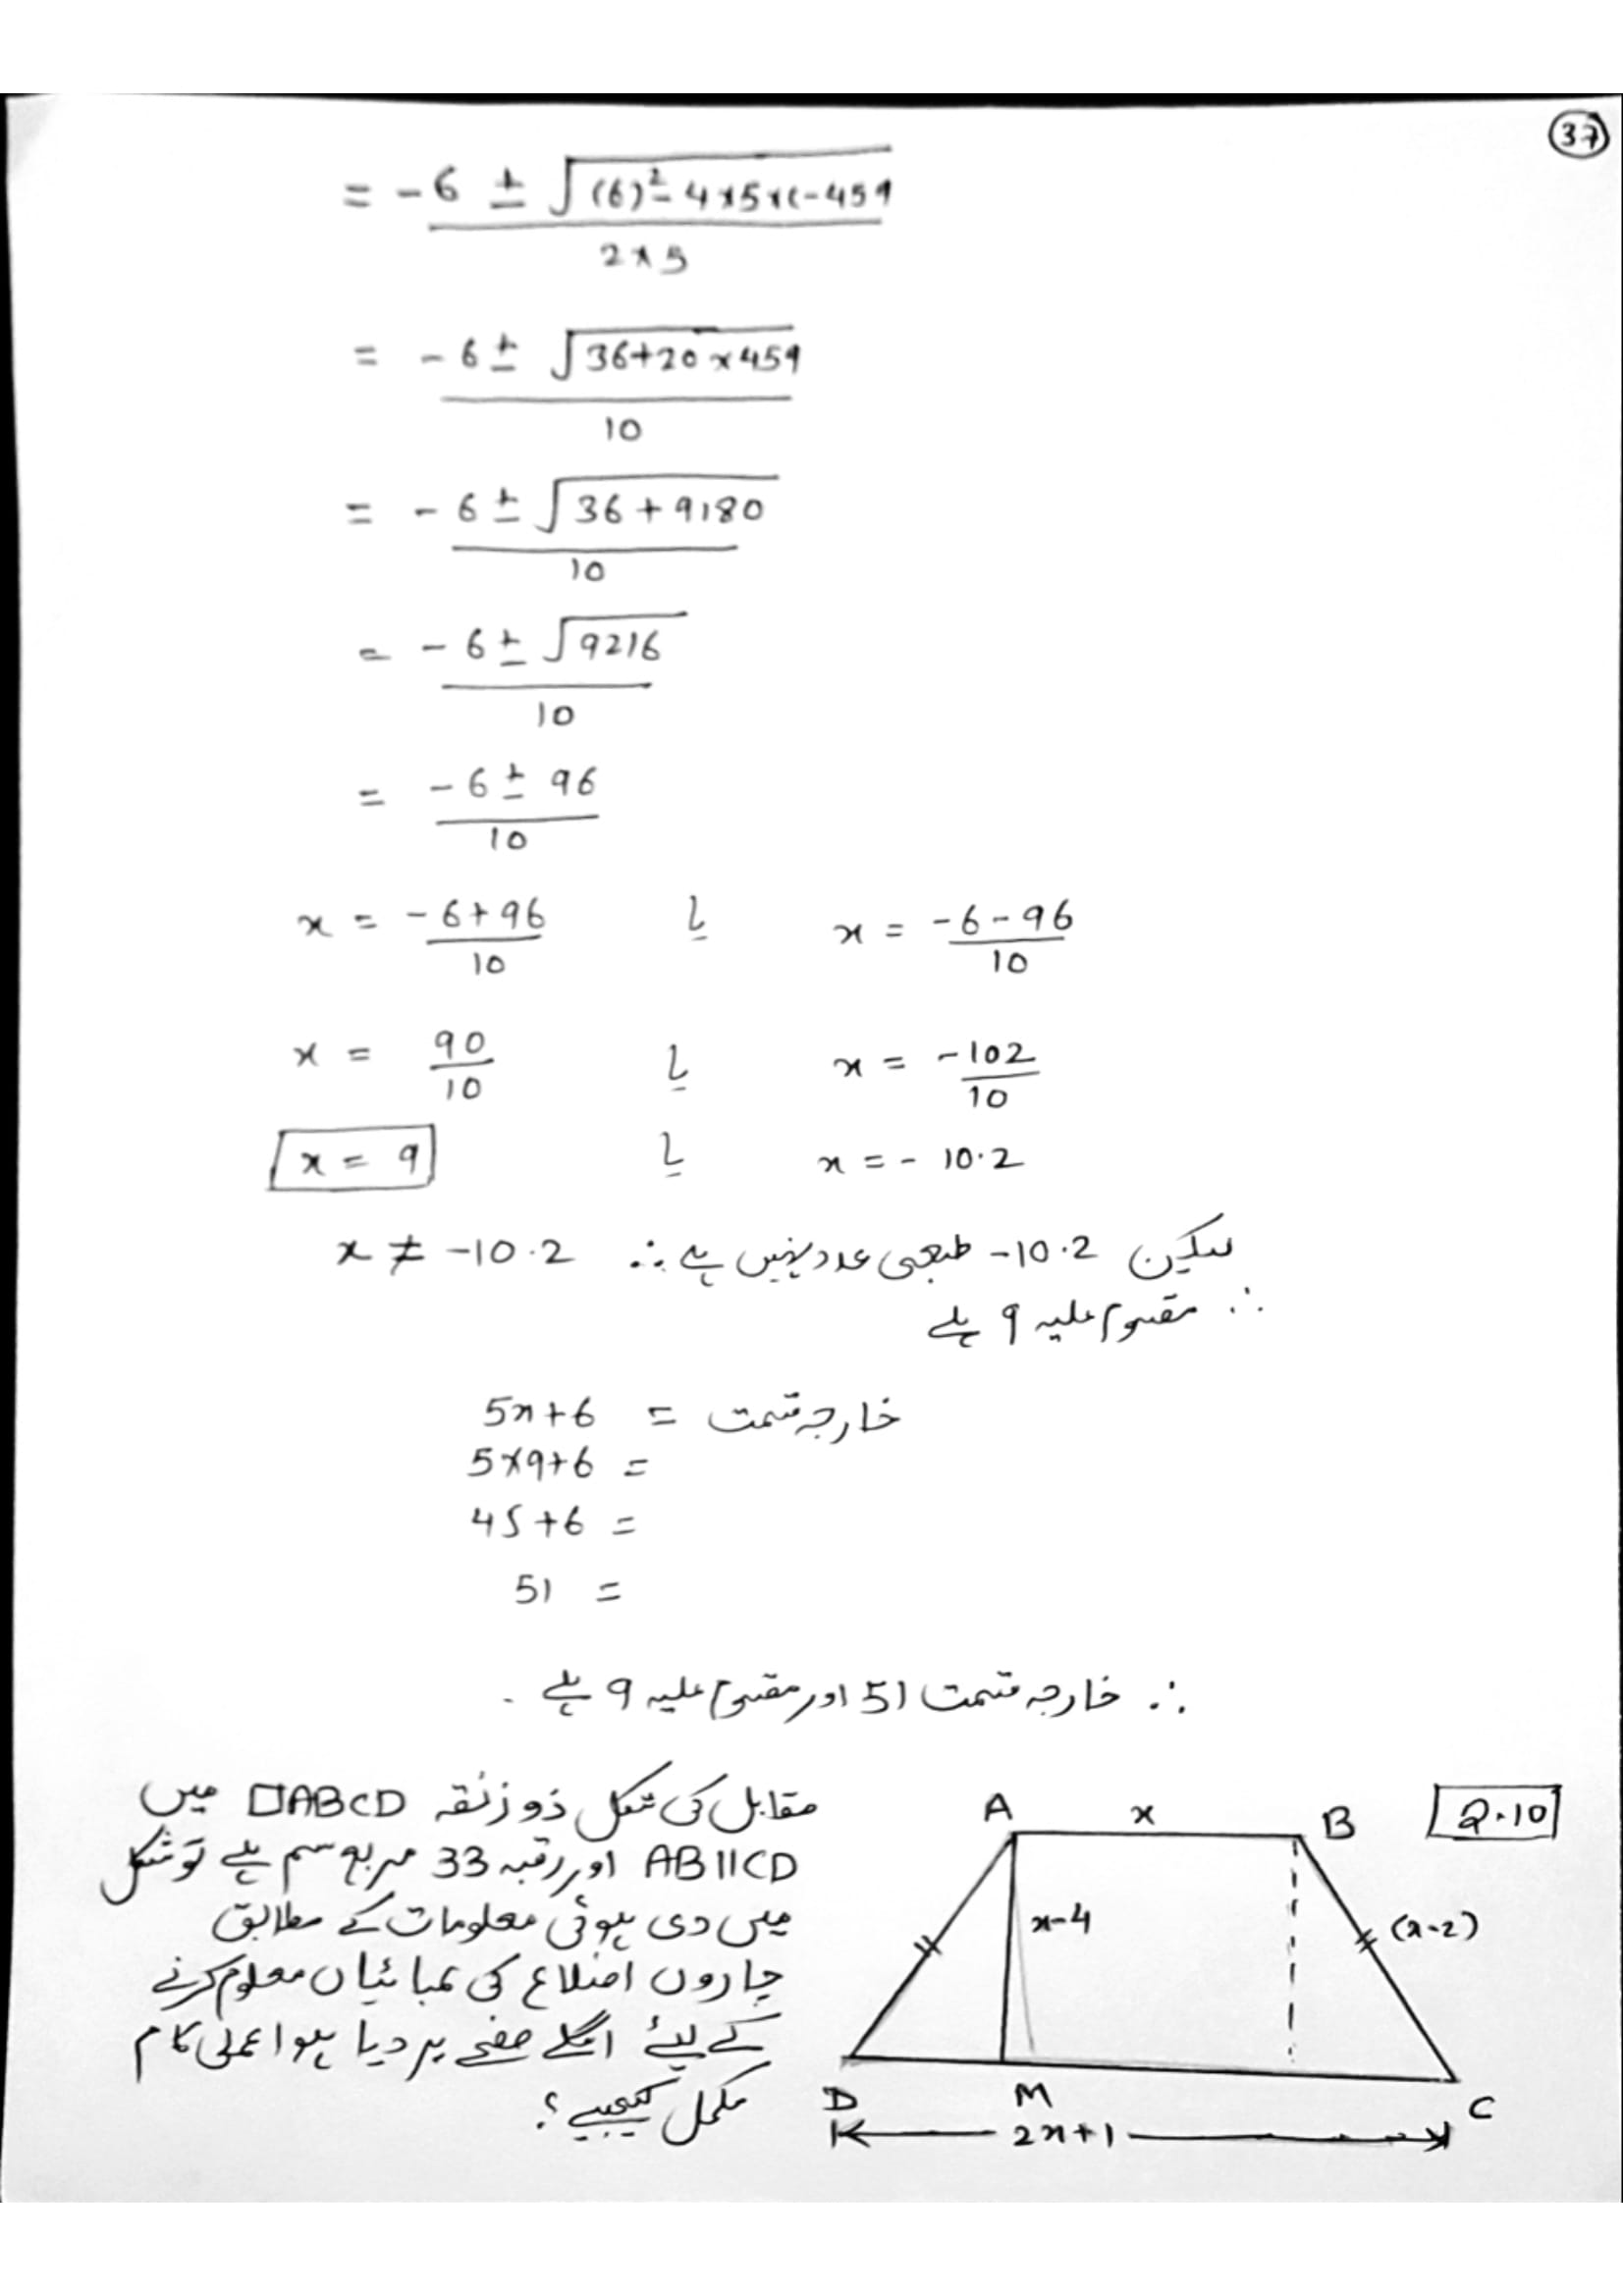 37
= -6 ± √(6)² - 4×5×(-459
2×5
= -6 ± √36+20×459
10
= -6 ± √36+9180
10
= -6 ± √9216
10
= -6 ± 96
10
x = -6+96 یا x = -6-96
10 10
x = 90 یا x = -102
10 10
x = 9 یا x = -10.2
لیکن 10.2- طبعی عدد نہیں ہے ∴ x ≠ -10.2
∴ مقسوم علیہ 9 ہے
خارجہ قسمت = 5x+6
5×9+6 =
45+6 =
51 =
∴ خارجہ قسمت 51 اور مقسوم علیہ 9 ہے .
Q.10
مقابل کی شکل ذوزنقہ □ABCD میں
AB||CD اور رقبہ 33 مربع سم ہے تو شکل
میں دی ہوئی معلومات کے مطابق
چاروں اضلاع کی لمبائیاں معلوم کرنے
کے لیئے اگلے صفحے پر دیا ہوا عملی کام
مکمل کیجیے؟
A x B
x-4 (x-2)
D M C
2x+1